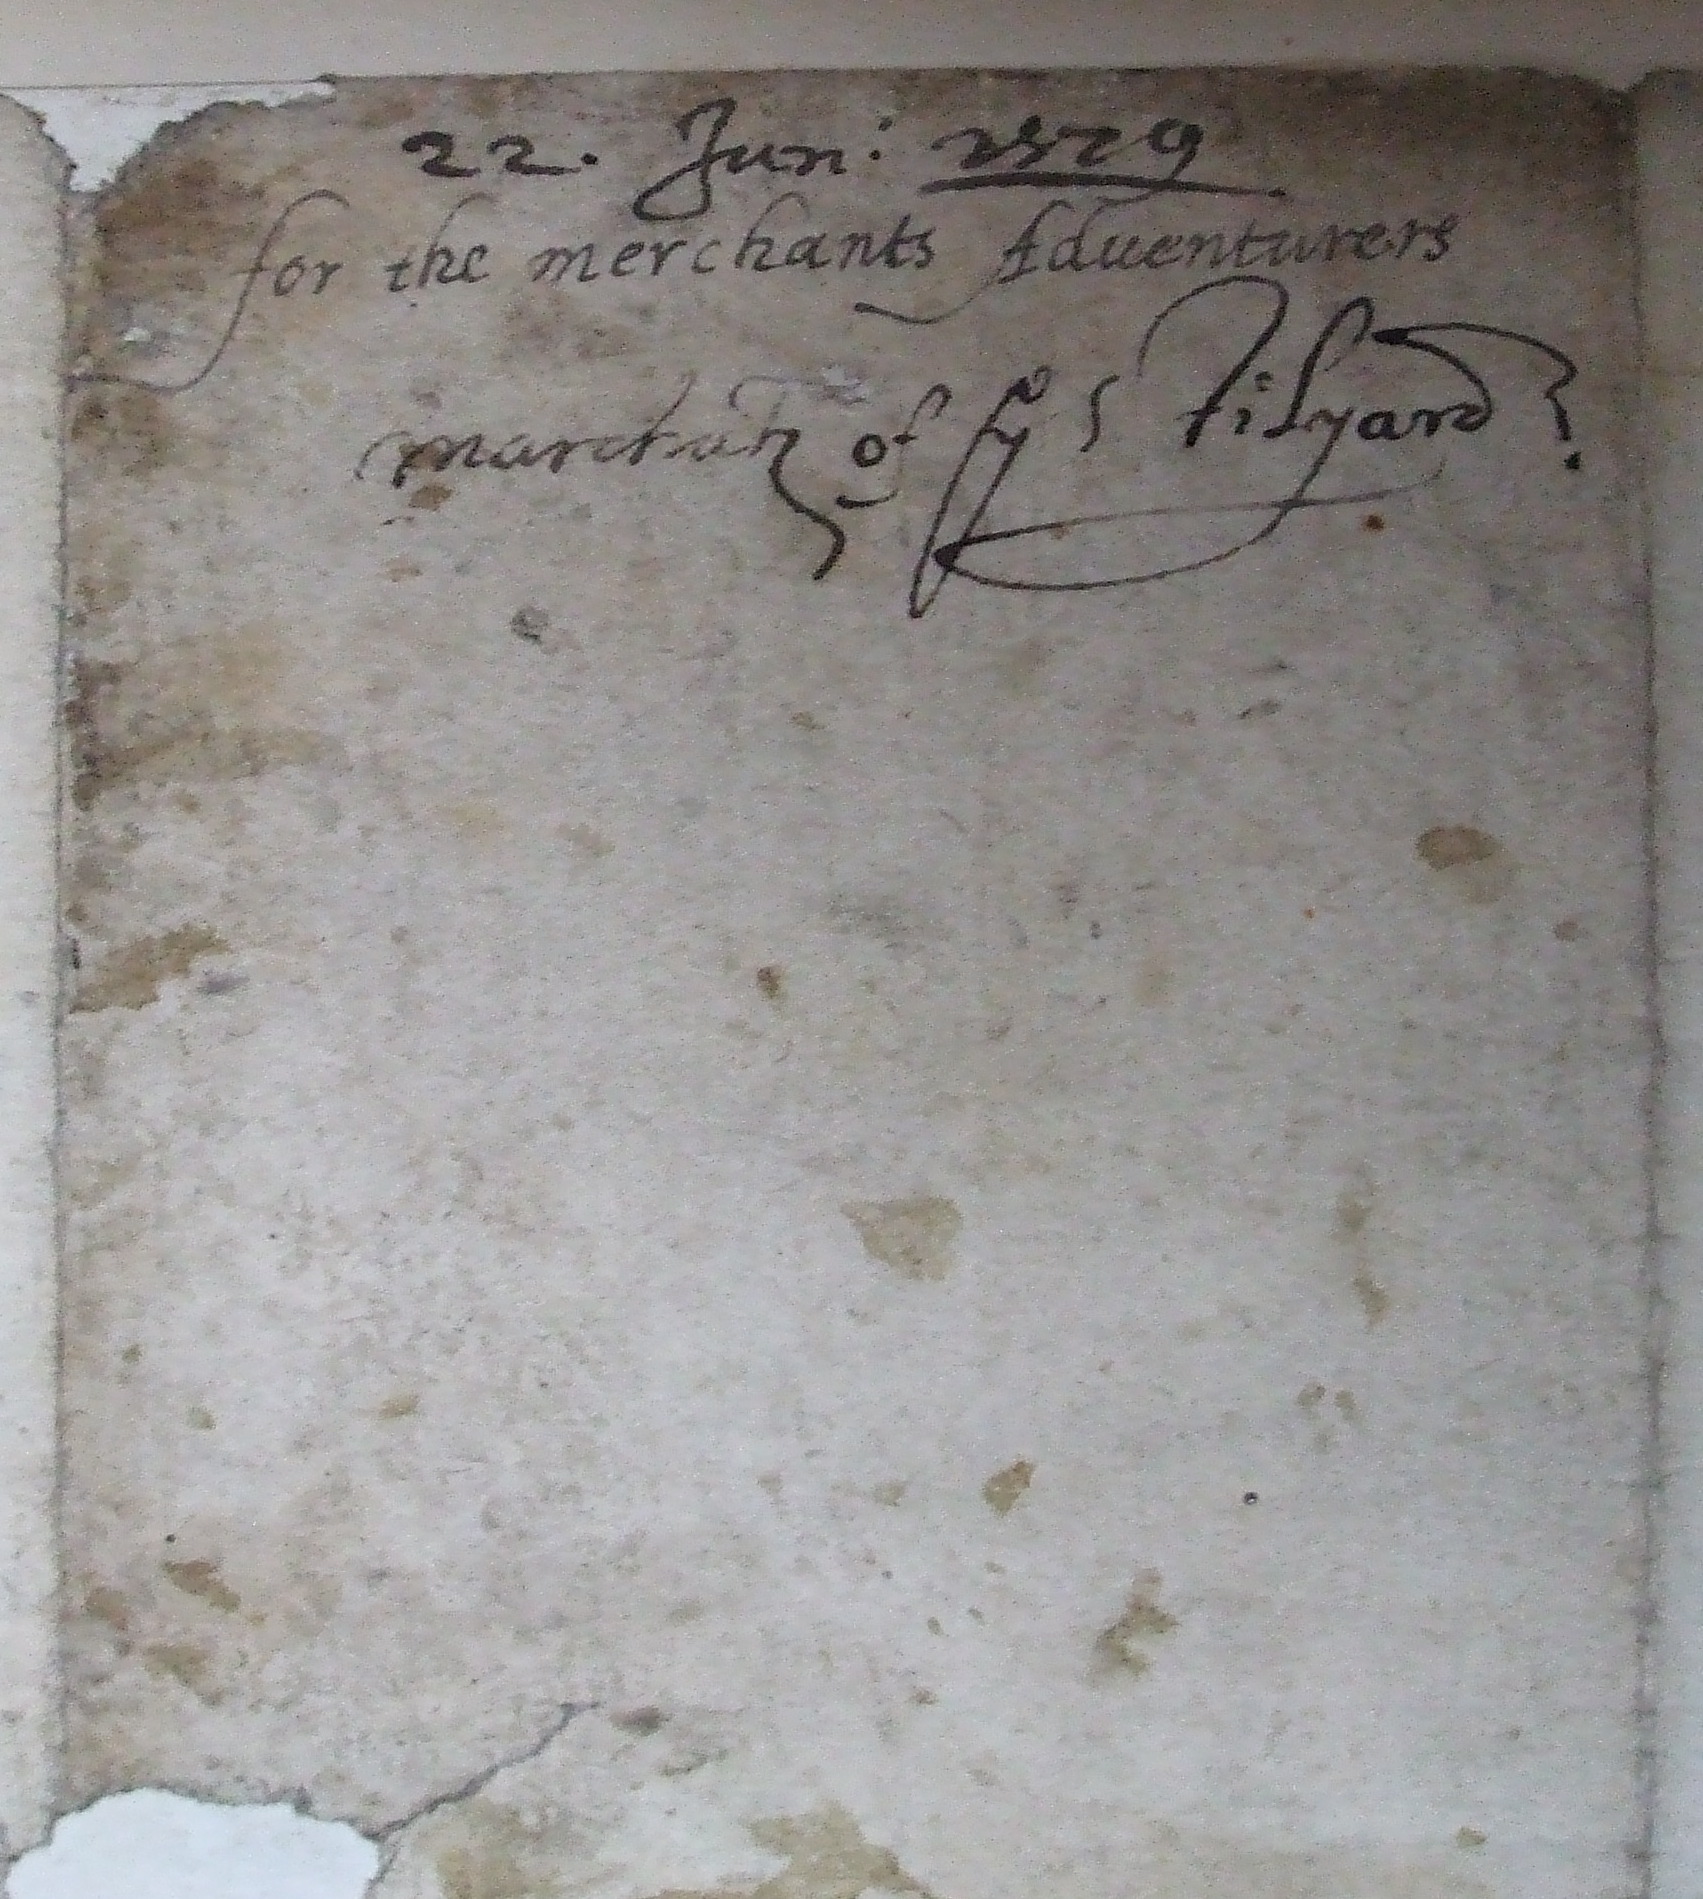 22. Jun: 1579
for the merchants Aduenturers
marchātz of yᵉ Stilyard